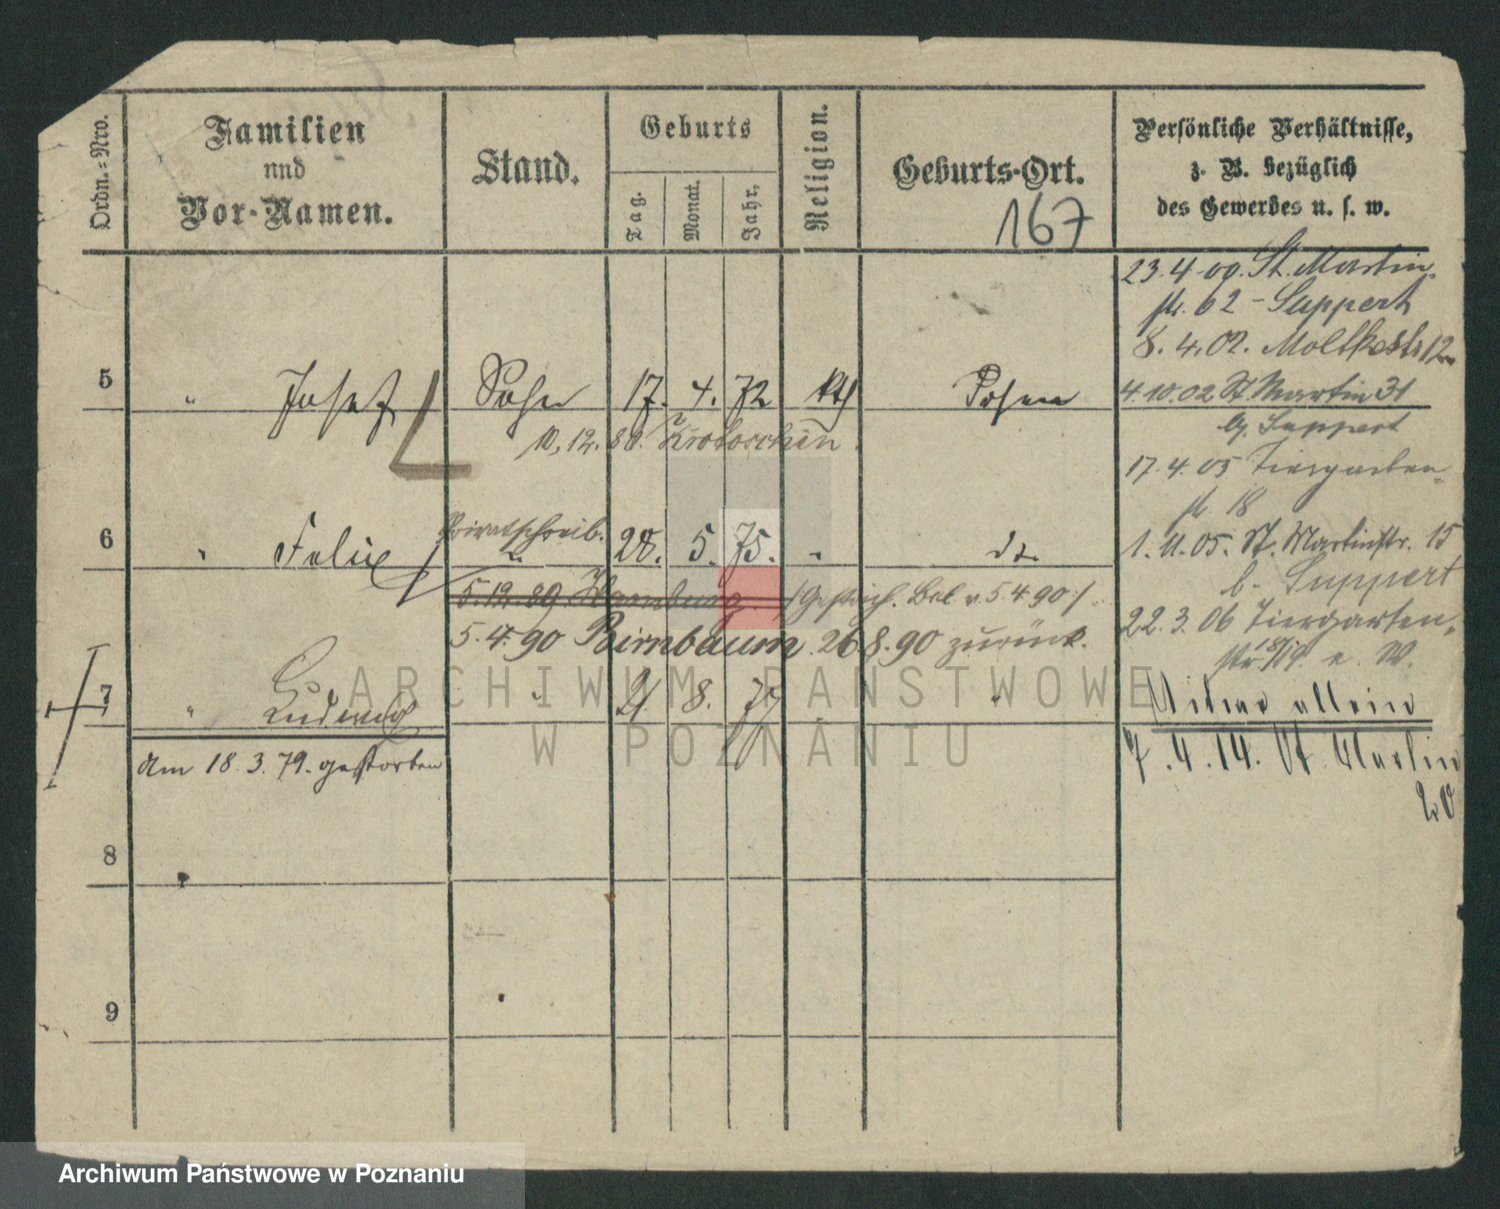 Ordn.=Nro.
Familien
und
Vor-Namen.
Stand.
Geburts
Tag.
Monat.
Jahr.
Religion.
Geburts-Ort.
167
Persönliche Verhältnisse,
z. B. bezüglich
des Gewerbes u. s. w.
23.4.00. St. Martin-
str. 62 - Suppert
8.4.02. Moltkestr 12
4.10.02 St Martin 31
b. Suppert
17.4.05 Tiergarten-
str 18
1.11.05. St. Martinstr. 15
b. Suppert
22.3.06 Tiergarten-
str 18/19 e. W.
Witwe allein
7.4.14. St. Martin
20
5 " Josef Sohn 17. 4. 72 kth Posen
10.12.80. n. Krotoschin.
6 " Felix Privatschreib. " 28. 5. 75. " do
5.12.89 Hamburg /Gestrich. Bel. v. 5.4.90/.
5.4.90 Birnbaum. 26.8.90 zurück.
7 " Ludwig " 21. 8. 77 "
am 18.3.79. gestorben
8
9
ARCHIWUM PAŃSTWOWE
W POZNANIU
Archiwum Państwowe w Poznaniu